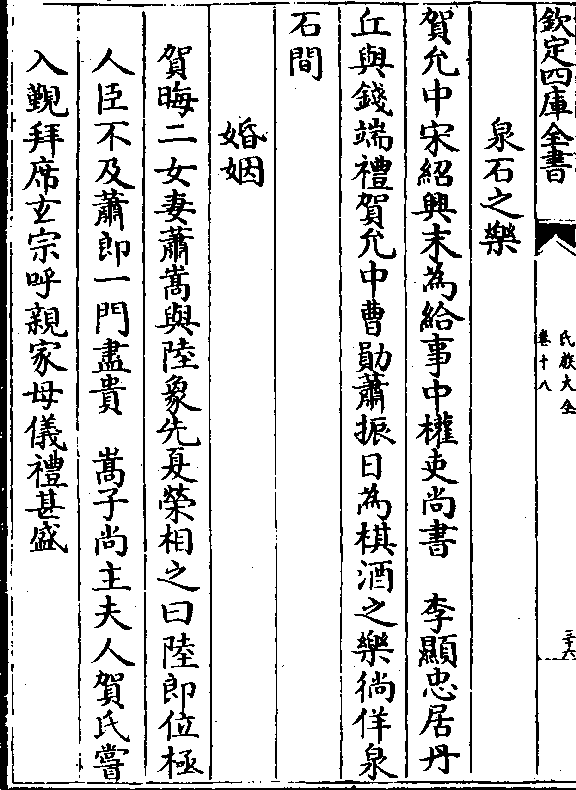 欽定四庫全書
氏族大全
卷十八
三十六
泉石之樂
賀允中宋紹興末為給事中權吏尚書　李顯忠居丹
丘與錢端禮賀允中曹勛蕭振日為棋酒之樂徜徉泉
石間
婚姻
賀晦二女妻蕭嵩與陸象先夏榮相之曰陸郎位極
人臣不及蕭郎一門盡貴　嵩子尚主夫人賀氏嘗
入覲拜席玄宗呼親家母儀禮甚盛